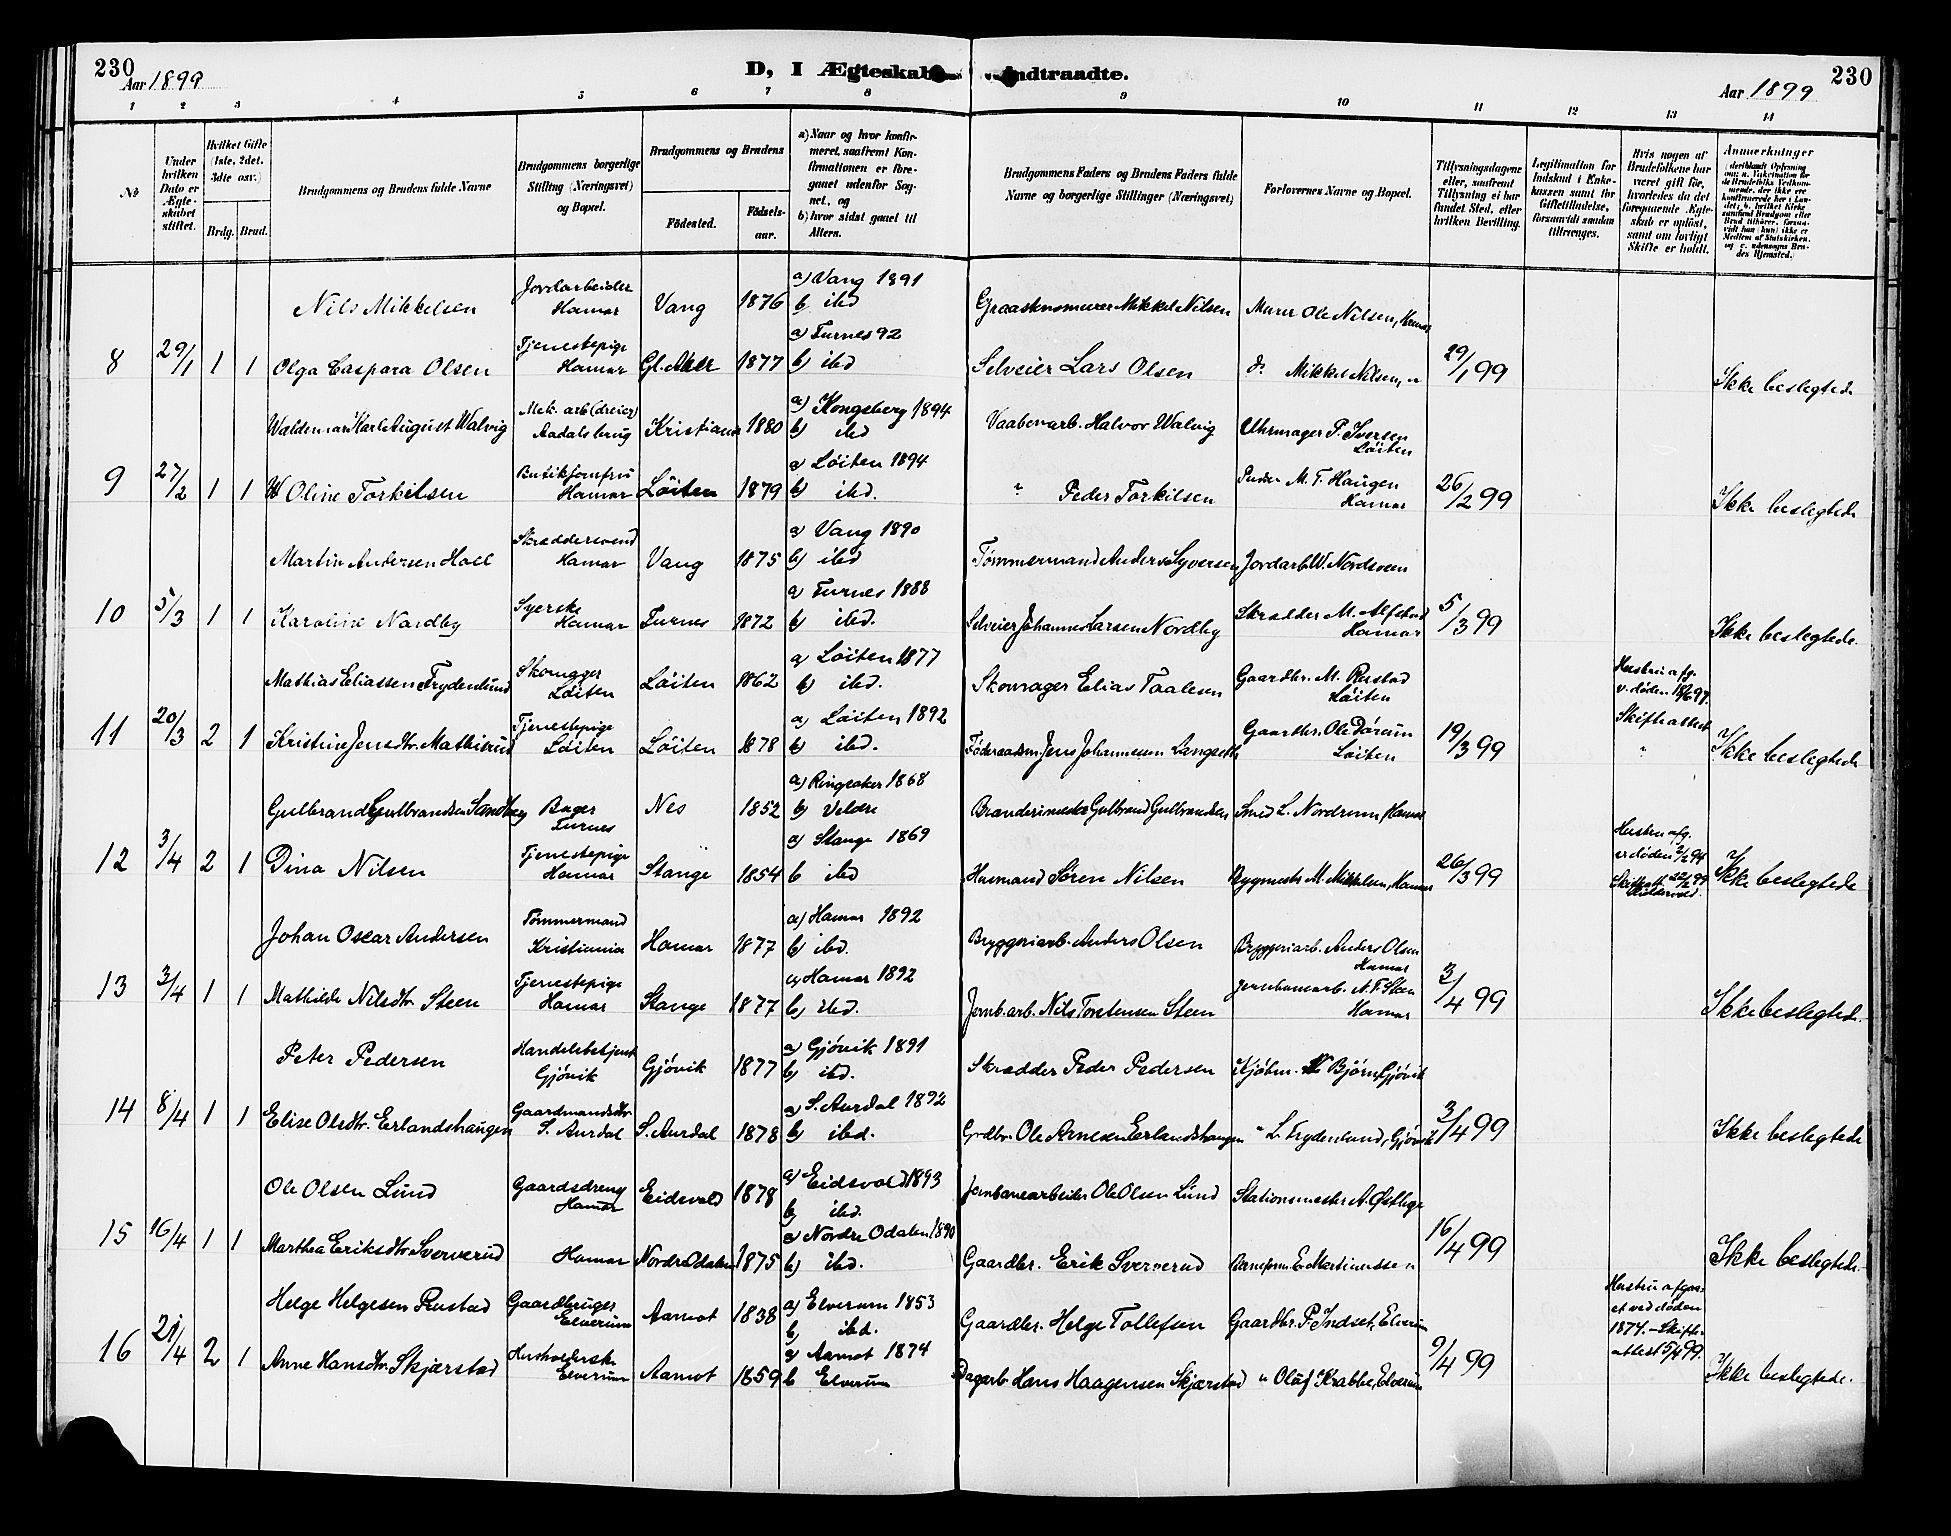 230
Aar 1899
D, I Ægteskab Indtraadte.
Aar 1899
230
1 2 3 4 5 6 7 8 9 10 11 12 13 14
№
Under hvilken Dato er Ægteskabet stiftet.
Hvilket Gifte (1ste, 2det, 3die osv.)
Brdg. Brud.
Brudgommens og Brudens fulde Navne
Brudgommens borgerlige Stilling (Næringsvei) og Bopæl.
Brudgommens og Brudens
Födested.
Födselsaar.
a) Naar og hvor konfirmeret, saafremt Konfirmationen er foregaaet udenfor Sognet, og
b) hvor sidst gaaet til Altern.
Brudgommens Faders og Brudens Faders fulde Navne og borgerlige Stillinger (Næringsvei)
Forlovernes Navne og Bopæl.
Tillysningsdagene eller, saafremt Tillysning ei har fundet Sted, efter hvilken Bevilling.
Legitimation for Indskud i Enkekassen samt for Giftetilladelse, forsaavidt saadan tiltrænges.
Hvis nogen af Brudefolkene har været gift før, hvorledes da det foregaaende Ægteskab er opløst, samt om lovligt Skifte er holdt.
Anmærkninger
Nils Mikkelsen Jordarbeider Hamar Vang 1876 a) Vang 1891 b) ibd Graastensmurer Mikkel Nilsen Murer Ole Nilsen, Hamar
8 29/1 1 1 Olga Caspara Olsen Tjenestepige Hamar Gl. Aker 1877 a) Furnes 92 b) ibd Selveier Lars Olsen do Mikkel Nilsen, " 29/1 99 Ikke beslegtede
Waldemar Karl August Walvig Mek. arb (dreier) Aadalsbrug Kristiania 1880 a) Kongsberg 1894 b) ibd Vaabenarb. Halvor Walvig Uhrmager P. Iversen Löiten
9 27/2 1 1 Oline Torkilsen Butikjomfru Hamar Löiten 1879 a) Löiten 1894 b) ibd. " Peder Torkilsen M. T. Haugen Hamar 26/2 99 Ikke beslegtede
Martin Andersen Hoel Skræddersvend Hamar Vang 1875 a) Vang 1890 b) ibd Tømmermand Anders Syversen Jordarb. W. Nordsveen
10 5/3 1 1 Karoline Nordby Syerske Hamar Furnes 1872 a) Furnes 1888 b) ibd. Selveier Johannes Larsen Nordby Skrædder M. Alfstad Hamar 5/3 99 Ikke beslegtede
Mathias Eliassen Frydenlund Skomager Löiten Löiten 1862 a) Löiten 1877 b) ibd. Skomager Elias Taalesen Gaardbr. M. Rustad Löiten Hustru afg. v. døden
11 20/3 2 1 Kristine Jensdtr. Mathisrud Tjenestepige Löiten Löiten 1878 a) Löiten 1892 b) ibd. Føderaadsm. Jens Johannesen Langseth Gaardbr. Ole Dørum Löiten 19/3 99 Skifteattest " Ikke beslegtede
Gulbrand Gulbrandsen Sandberg Bager Furnes Nes 1852 a) Ringsaker 1868 b) Veldre Gulbrand Gulbrandsen Smed L. Nordrum, Hamar
12 3/4 2 1 Dina Nilsen Tjenestepige Hamar Stange 1854 a) Stange 1869 b ibd Husmand Søren Nilsen Bygmester M. Mikkelsen, Hamar 26/3 99 Hustru afg. v døden 2/2 94 Skifteatt. 22/2 99 Ikke beslegtede
Johan Oscar Andersen Tømmermand Kristiania Hamar 1877 a) Hamar 1892 b) ibd. Bryggeriarb. Anders Olsen Bryggeriarb. Anders Olsen Hamar
13 3/4 1 1 Mathilde Nilsdtr. Steen Tjenestepige Hamar Stange 1877 a) Hamar 1892 b) ibd. Jernb. arb. Nils Torstensen Steen Jernbanearb. N. T. Steen Hamar 3/4 99 Ikke beslegtede.
Peter Pedersen Handelsbetjent Gjövik Gjövik 1877 a) Gjövik 1891 b) ibd. Skrædder Peder Pedersen Kjøbm. Bjørn, Gjövik
14 8/4 1 1 Elise Olsdtr. Erlandshaugen Gaardmandsdtr. S. Aurdal S. Aurdal 1878 a) S. Aurdal 1892 b) ibd. Grdbr. Ole Arnesen Erlandshaugen " L. Frydenlund, Gjövik 3/4 99 Ikke beslegtede
Ole Olsen Lund Gaardsdreng Hamar Eidsvold 1878 a) Eidsvold 1893 b) ibd. Jernbanearbeider Ole Olsen Lund Stationsmester A. Østlyge
15 16/4 1 1 Marthea Eriksdtr. Sververud Hamar Nordre Odalen 1875 a) Nordre Odalen 1890 b) ibd. Gaardbr. Erik Sververud Baneform. E. Martinussen 16/4 99 Ikke beslegtede.
Helge Helgesen Rustad Gaardbruger Elverum Aamot 1838 a) Elverum 1853 b) ibd. Gaardbr. Helge Tollefsen Gaardbr. P. Indset, Elverum Hustru afgaaet ved døden 1874. - Skifteattest 5/4 99.
16 21/4 2 1 Anne Hansdtr. Skjærstad Husholderske Elverum Aamot 1859 a) Aamot 1874 b Elverum Dagarb. Hans Haagensen Skjærstad " Oluf Krabbe, Elverum 9/4 99 Ikke beslegtede.